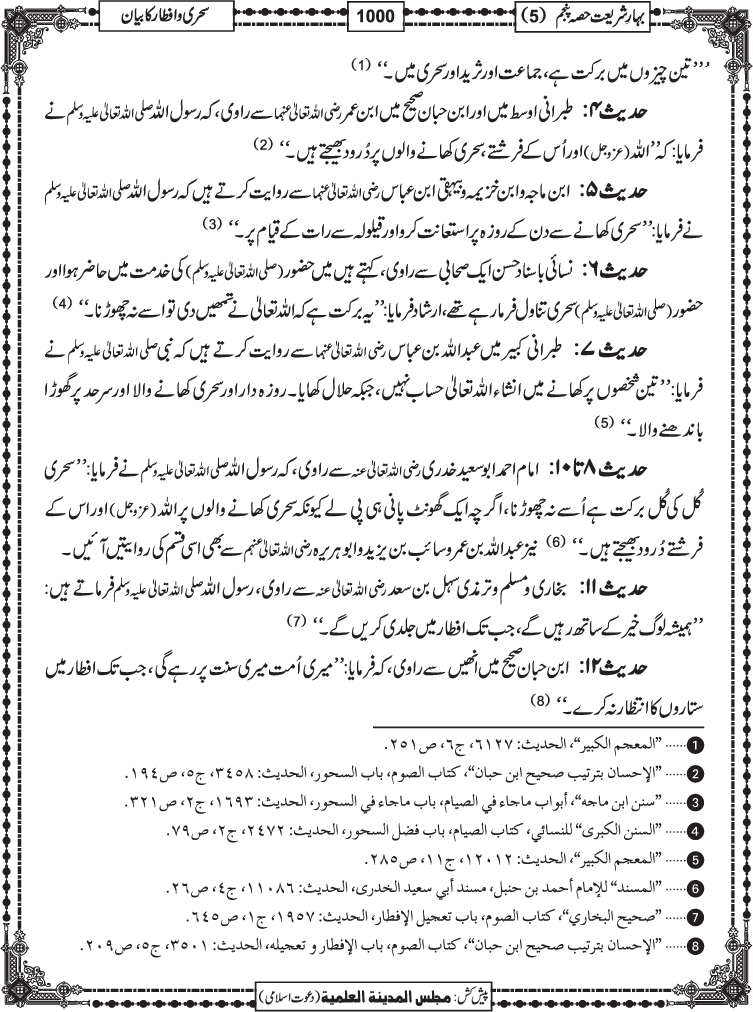 بہارِ شریعت حصہ پنجم (5)
1000
سحری و افطار کا بیان
’’تین چیزوں میں برکت ہے، جماعت اور ثرید اور سحری میں۔‘‘ (1)
حدیث ۴: طبرانی اوسط میں اور ابن حبان صحیح میں ابن عمر رضی اللہ تعالیٰ عنہما سے راوی، کہ رسول اللہ صلی اللہ تعالیٰ علیہ وسلم نے
فرمایا: کہ ’’اللہ (عزوجل) اور اُس کے فرشتے، سحری کھانے والوں پر دُرود بھیجتے ہیں۔‘‘ (2)
حدیث ۵: ابن ماجہ و ابن خزیمہ و بیہقی ابن عباس رضی اللہ تعالیٰ عنہما سے روایت کرتے ہیں کہ رسول اللہ صلی اللہ تعالیٰ علیہ وسلم
نے فرمایا: ’’سحری کھانے سے دن کے روزہ پر استعانت کرو اور قیلولہ سے رات کے قیام پر۔‘‘ (3)
حدیث ۶: نسائی باسناد حسن ایک صحابی سے راوی، کہتے ہیں میں حضور (صلی اللہ تعالیٰ علیہ وسلم) کی خدمت میں حاضر ہوا اور
حضور (صلی اللہ تعالیٰ علیہ وسلم) سحری تناول فرما رہے تھے، ارشاد فرمایا: ’’یہ برکت ہے کہ اللہ تعالیٰ نے تمھیں دی تو اسے نہ چھوڑنا۔‘‘ (4)
حدیث ۷: طبرانی کبیر میں عبداللہ بن عباس رضی اللہ تعالیٰ عنہما سے روایت کرتے ہیں کہ نبی صلی اللہ تعالیٰ علیہ وسلم نے
فرمایا: ’’تین شخصوں پر کھانے میں انشاء اللہ تعالیٰ حساب نہیں، جبکہ حلال کھایا۔ روزہ دار اور سحری کھانے والا اور سرحد پر گھوڑا
باندھنے والا۔‘‘ (5)
حدیث ۸ تا ۱۰: امام احمد ابوسعید خدری رضی اللہ تعالیٰ عنہ سے راوی، کہ رسول اللہ صلی اللہ تعالیٰ علیہ وسلم نے فرمایا: ’’سحری
کُل کی کُل برکت ہے اُسے نہ چھوڑنا، اگرچہ ایک گھونٹ پانی ہی پی لے کیونکہ سحری کھانے والوں پر اللہ (عزوجل) اور اس کے
فرشتے دُرود بھیجتے ہیں۔‘‘ (6) نیز عبداللہ بن عمر و سائب بن یزید و ابوہریرہ رضی اللہ تعالیٰ عنہم سے بھی اسی قسم کی روایتیں آئیں۔
حدیث ۱۱: بخاری و مسلم و ترمذی سہل بن سعد رضی اللہ تعالیٰ عنہ سے راوی، رسول اللہ صلی اللہ تعالیٰ علیہ وسلم فرماتے ہیں:
’’ہمیشہ لوگ خیر کے ساتھ رہیں گے، جب تک افطار میں جلدی کریں گے۔‘‘ (7)
حدیث ۱۲: ابن حبان صحیح میں انھیں سے راوی، کہ فرمایا: ’’میری اُمت میری سنت پر رہے گی، جب تک افطار میں
ستاروں کا انتظار نہ کرے۔‘‘ (8)
1 ...... ”المعجم الكبير“، الحديث: ٦١٢٧، ج٦، ص٢٥١.
2 ...... ”الإحسان بترتيب صحيح ابن حبان“، كتاب الصوم، باب السحور، الحديث: ٣٤٥٨، ج٥، ص١٩٤.
3 ...... ”سنن ابن ماجه“، أبواب ماجاء في الصيام، باب ماجاء في السحور، الحديث: ١٦٩٣، ج٢، ص٣٢١.
4 ...... ”السنن الكبرى“ للنسائي، كتاب الصيام، باب فضل السحور، الحديث: ٢٤٧٢، ج٢، ص٧٩.
5 ...... ”المعجم الكبير“، الحديث: ١٢٠١٢، ج١١، ص٢٨٥.
6 ...... ”المسند“ للإمام أحمد بن حنبل، مسند أبي سعيد الخدرى، الحديث: ١١٠٨٦، ج٤، ص٢٦.
7 ...... ”صحيح البخاري“، كتاب الصوم، باب تعجيل الإفطار، الحديث: ١٩٥٧، ج١، ص٦٤٥.
8 ...... ”الإحسان بترتيب صحيح ابن حبان“، كتاب الصوم، باب الإفطار و تعجيله، الحديث: ٣٥٠١، ج٥، ص٢٠٩.
پیش کش: مجلس المدینة العلمیة (دعوت اسلامی)